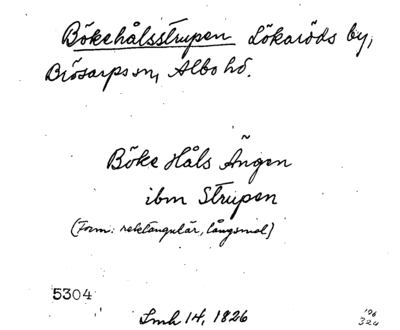 Bökehålsstrupen Lökaröds by,
Brösarps sn, Albo hd.
Böke Håls Ängen
ibm Strupen
(Form: rektangulär, långsmal)
5304
Lmh 14, 1826